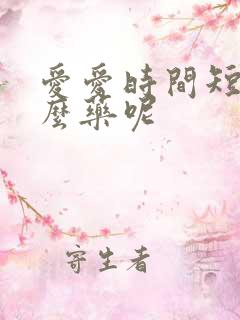 愛愛時間短
麼藥呢
寄生者